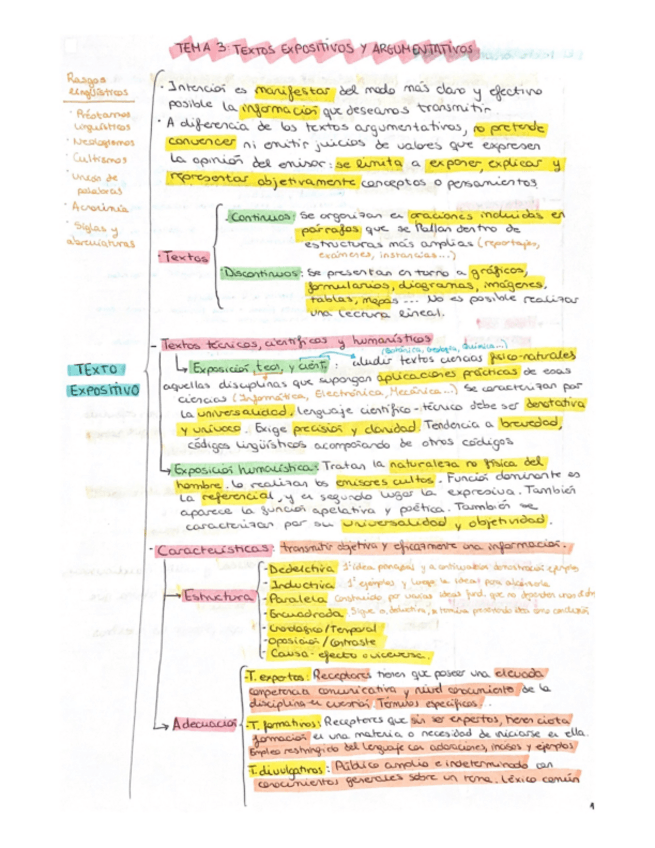 TEMA 3: TEXTOS EXPOSITIVOS Y ARGUMENTATIVOS
Rasgos
lingüísticos
· Préstamos
lingüísticos
· Neologismos
· Cultismos
· Unión de
palabras
· Acronimia
· Siglas y
abreviaturas
TEXTO
EXPOSITIVO
· Intención es manifestar del modo más claro y efectivo
posible la información que deseamos transmitir.
· A diferencia de los textos argumentativos, no pretende
convencer ni emitir juicios de valores que expresen
la opinión del emisor: se limita a exponer, explicar y
representar objetivamente conceptos o pensamientos.
· Textos
· Continuos: Se organizan en oraciones incluidas en
párrafos que se hallan dentro de
estructuras más amplias (reportajes,
exámenes, instancias...)
· Discontinuos: Se presentan en torno a gráficos,
formularios, diagramas, imágenes,
tablas, mapas... No es posible realizar
una lectura lineal.
- Textos técnicos, científicos y humanísticos
(Botánica, Geología, Química...)
Exposición tecn. y cient.: aluden textos ciencias físico-naturales
aquellas disciplinas que supongan aplicaciones prácticas de esas
ciencias (Informática, Electrónica, Mecánica...) Se caracterizan por
la universalidad, lenguaje científico-técnico debe ser denotativa
y unívoco. Exige precisión y claridad. Tendencia a brevedad,
códigos lingüísticos acompañando de otros códigos
Exposición humanística: Tratan la naturaleza no física del
hombre. Lo realizan los emisores cultos. Función dominante es
la referencial, y en segundo lugar la expresiva. También
aparece la función apelativa y poética. También se
caracterizan por su universalidad y objetividad.
- Características: transmitir objetiva y eficazmente una información.
Estructura
- Deductiva 1º idea principal y a continuación demostración ejemplos
- Inductiva 1º ejemplos y luego la idea para
- Paralela Construido por varias ideas fund. que no dependen unas d otra
- Encuadrada Sigue deductiva, y termina poniendo otra como conclusión
- Cronológico/Temporal
- Oposición/Contraste
- Causa-efecto o viceversa.
Adecuación
- T. expertos: Receptores tienen que poseer una elevada
competencia comunicativa y nivel conocimiento de la
disciplina en cuestión. Términos específicos.
- T. formativos: Receptores que sin ser expertos, tienen cierta
formación en una materia o necesidad de iniciarse en ella.
Empleo restringido del lenguaje con aclaraciones, incisos y ejemplos
T. divulgativos: Público amplio e indeterminado con
conocimientos generales sobre un tema. Léxico común
1